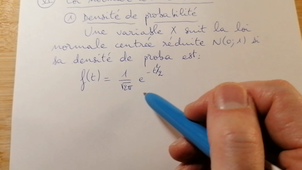 ① Densité de probabilité
Une variable X suit la loi
normale centrée réduite N(0,1) si
sa densité de proba est:
f(t) = 1/√2π e^-t²/2